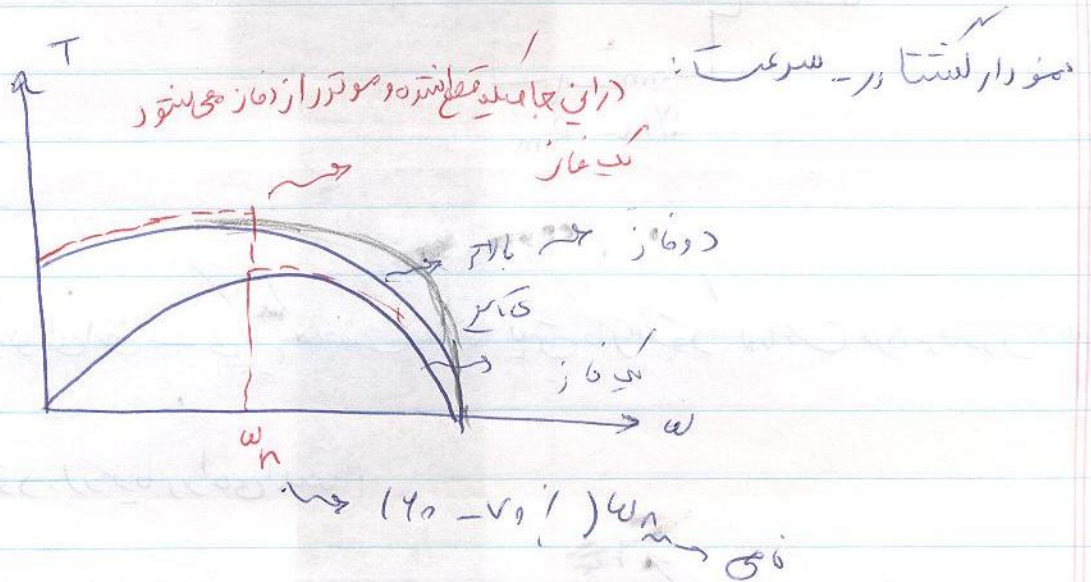 نمودار گشتاور - سرعت :
T
در این جا کلید قطع شده و موتور از دو فاز می شود
یک فاز
دو فاز بالاتر
یک فاز
ω
ωn
(۶۰ - ۷۰٪) ωn